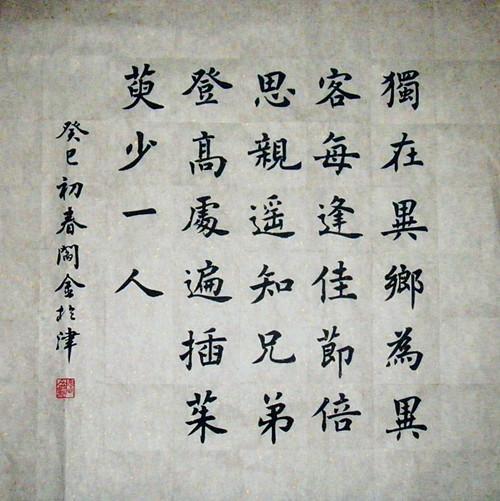 獨在異鄉為異
客每逢佳節倍
思親遥知兄弟
登髙處遍插茱
萸少一人
癸巳初春閻金於津